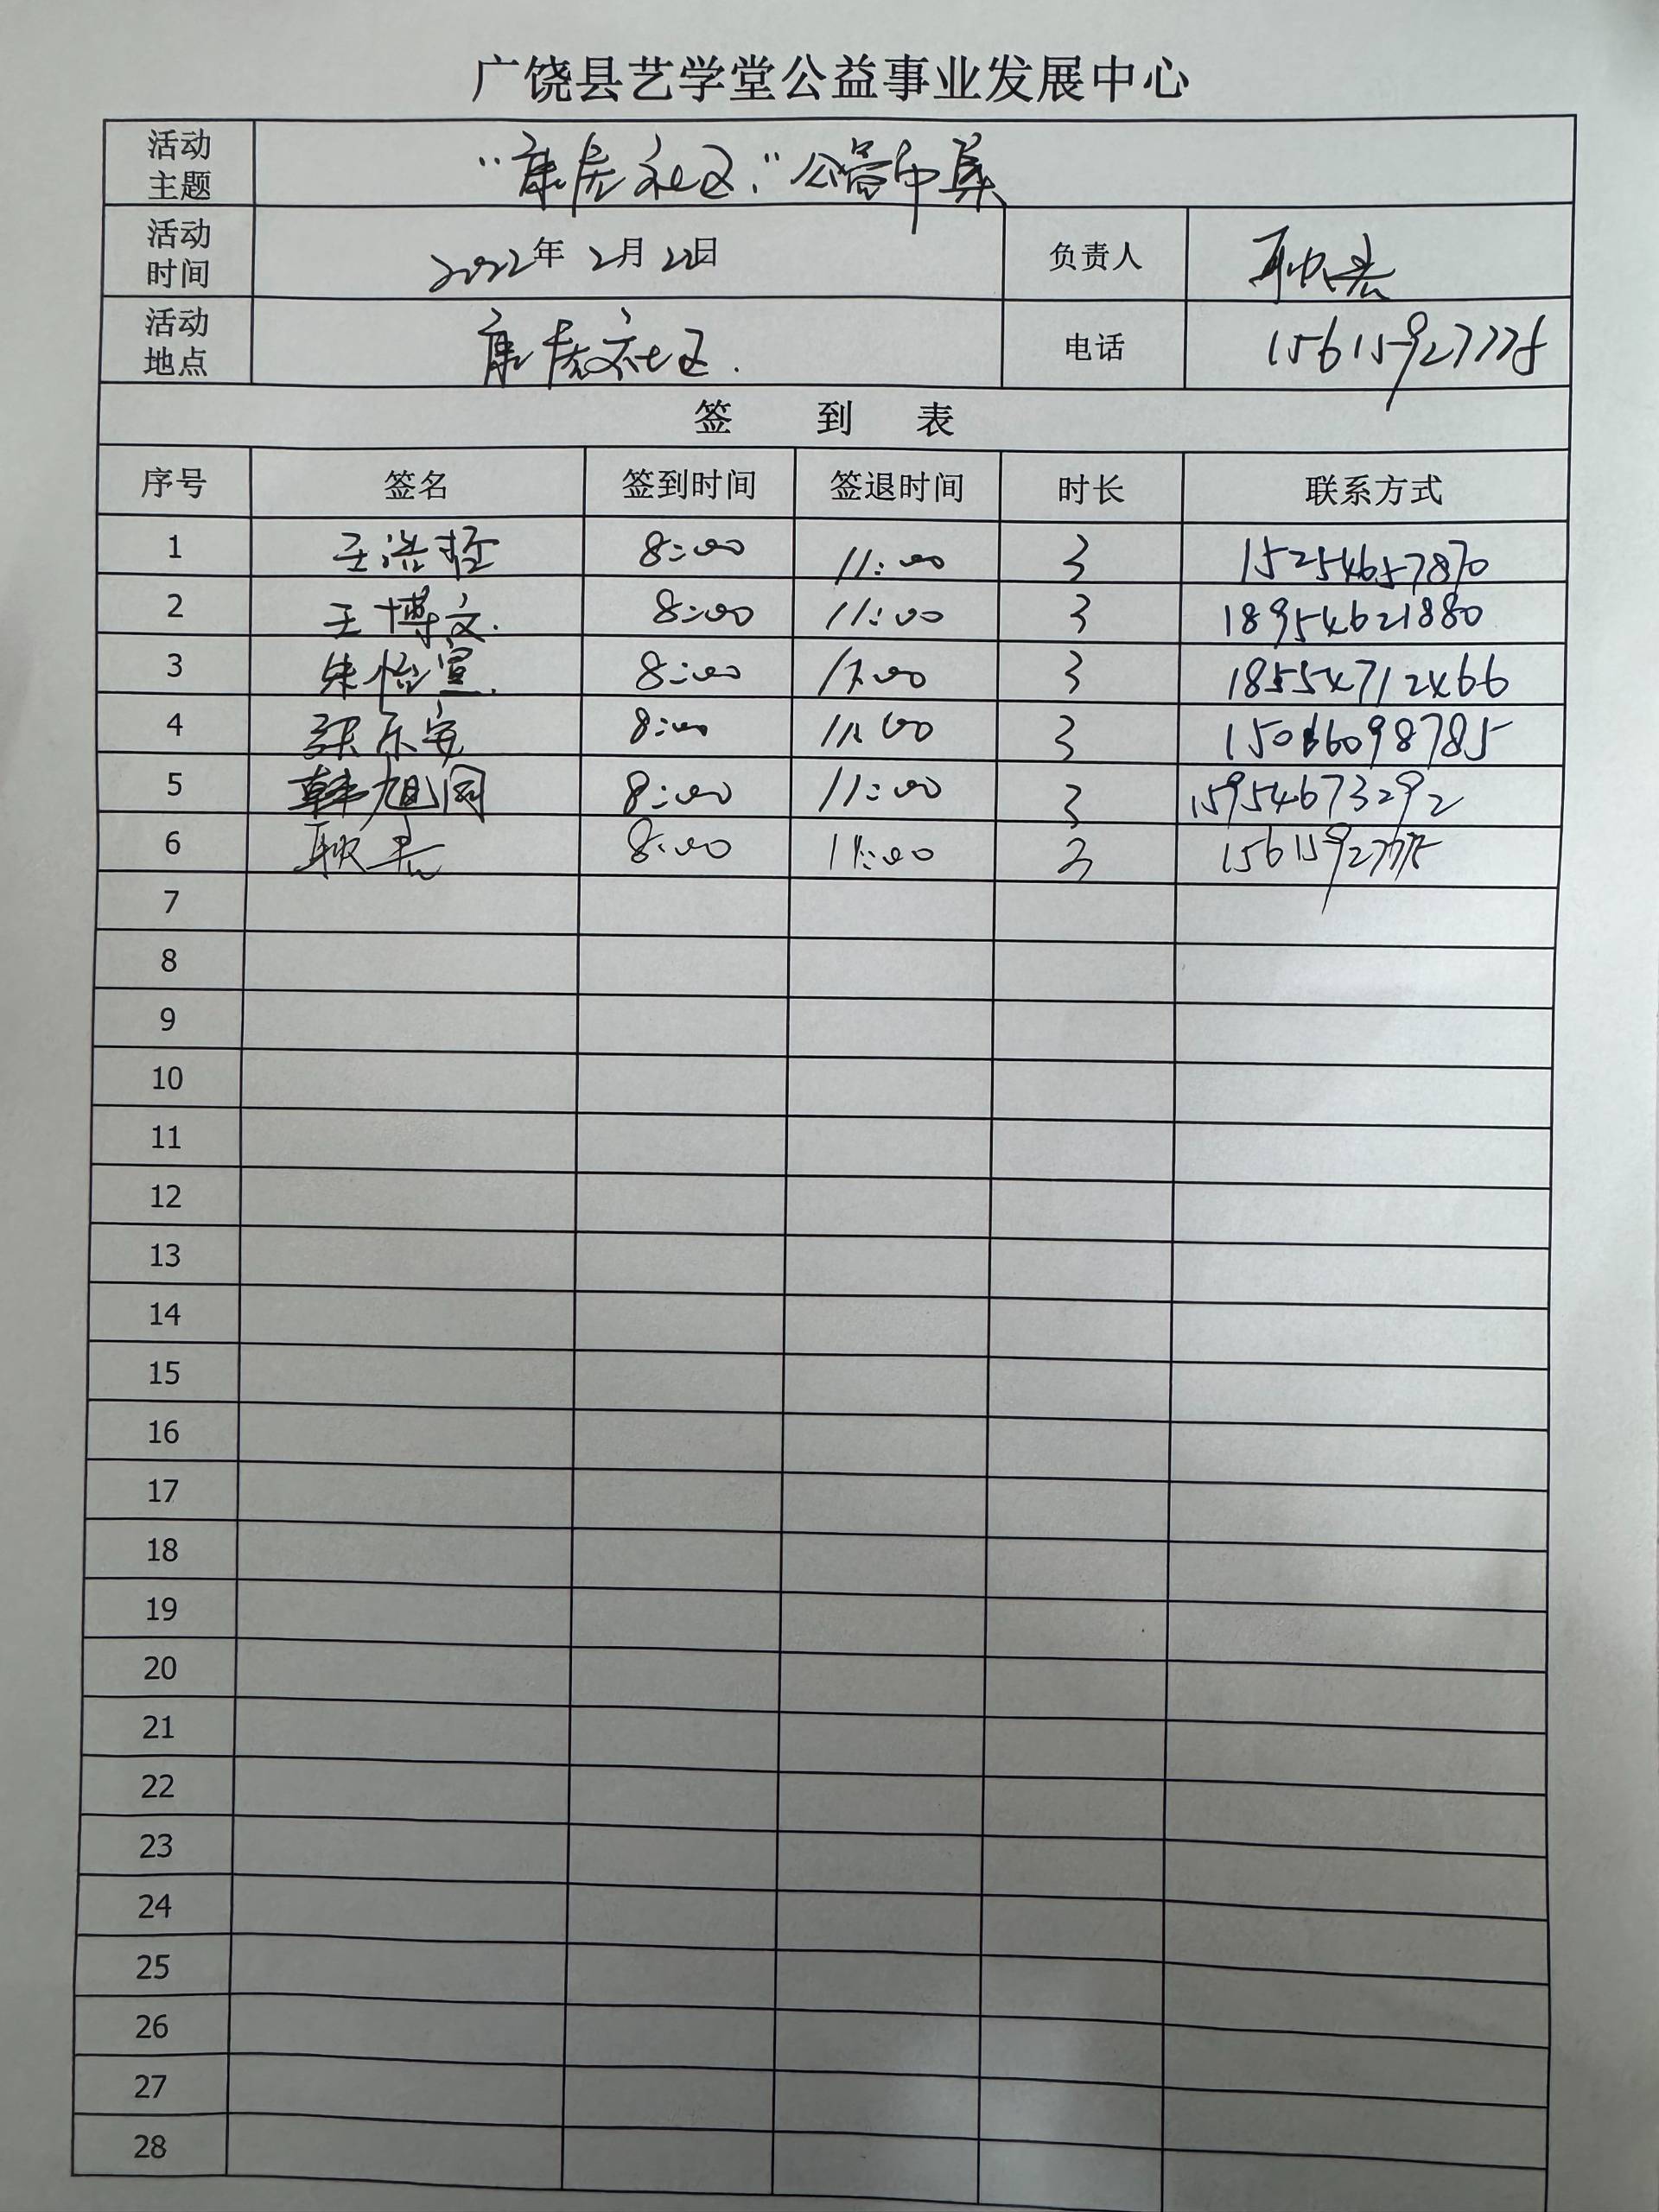 广饶县艺学堂公益事业发展中心
活动主题 "康居社区"公益市集
活动时间 2022年2月22日 负责人
活动地点 康居社区. 电话 15615927775
签 到 表
序号 签名 签到时间 签退时间 时长 联系方式
1 王浩 8:00 11:00 3 15254657870
2 王博文. 8:00 11:00 3 18954621880
3 朱怡萱. 8:00 11:00 3 18554712466
4 张乐安 8:00 11:00 3 15066098785
5 韩旭同 8:00 11:00 3 15954673292
6 8:00 11:00 3 15615927775
7
8
9
10
11
12
13
14
15
16
17
18
19
20
21
22
23
24
25
26
27
28